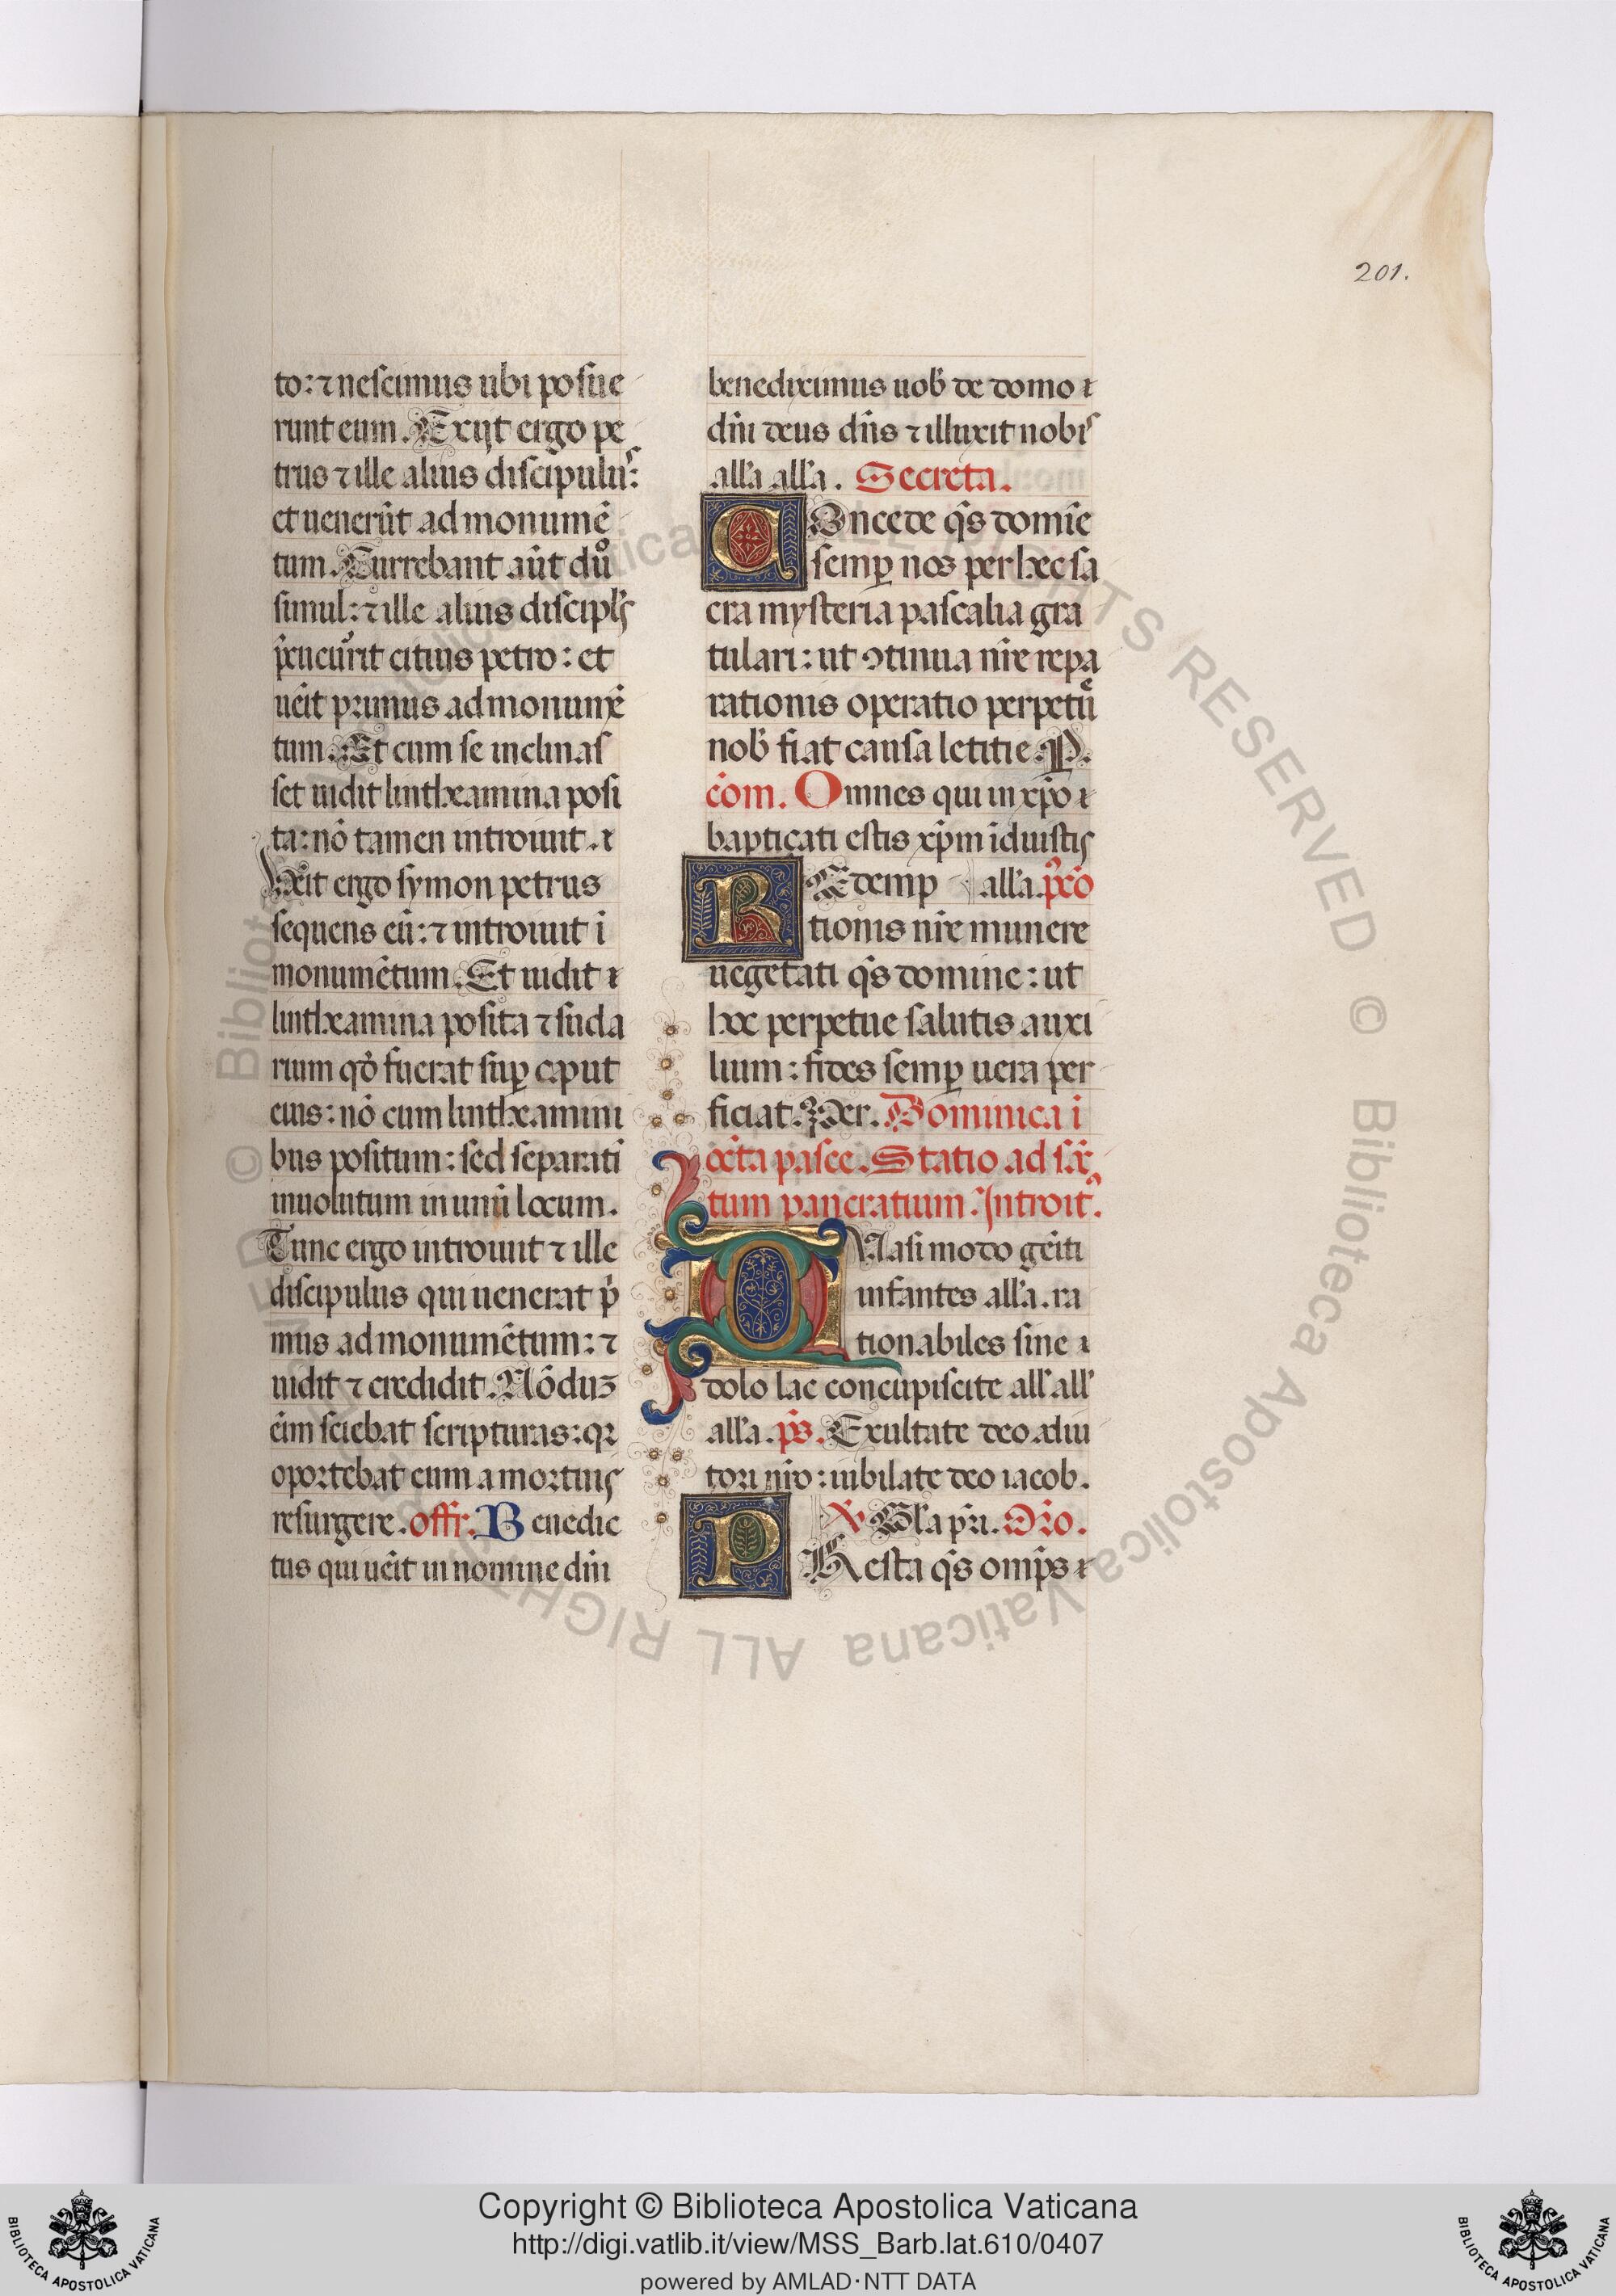 201.
to: ⁊ nescimus ubi posue
runt eum. Exijt ergo pe
trus ⁊ ille alius discipulus:
et uenerūt ad monumē
tum. Currebant aūt duo
simul: ⁊ ille alius discipls
p̄cucurrit citius petro: et
uēit primus ad monumē
tum. Et cum se inclinas
set uidit lintheamina posi
ta: nō tamen introiuit.
Uēit ergo symon petrus
sequens eū: ⁊ introiuit i
monumētum. Et uidit
lintheamina posita ⁊ suda
rium qd̄ fuerat sup̱ caput
eius: nō cum lintheamini
bus positum: sed separati
inuolutum in unū locum.
Tunc ergo introiuit ⁊ ille
discipulus qui uenerat pⁱ
mus ad monumētum: ⁊
uidit ⁊ credidit. Nōduꝫ
eīm sciebat scripturas: qꝛ
oportebat eum a mortuis
resurgere. offr. Benedic
tus qui uēit in nomine dn̄i
benediximus uob̄ de domo
dn̄i deus dn̄s ⁊ illuxit nobis
all̄a all̄a. Secreta.
COncede qs̄ domīe
semp̱ nos per hec sa
cra mysteria pascalia gra
tulari: ut ꝯtinua nr̄e repa
rationis operatio perpetue
nob̄ fiat causa letitie. P.
cōm. Omnes qui in xp̄o
bapticati estis xp̄m īduistis
REdemp all̄a. p̄ co
tionis nr̄e munere
uegetati qs̄ domine: ut
hoc perpetue salutis auxi
lium: fides semp̱ uera per
ficiat: Per. Dominica i
octa pasce. Statio ad sāc
tum pancratium. Introitꝰ.
QUasi modo gēiti
infantes all̄a. ra
tionabiles sine
dolo lac concupiscite all̄ all̄
all̄a. ps̄. Exultate deo adiu
tori nr̄o: iubilate deo iacob.
℣ Gl̄a pr̄i. Or̄o.
PResta qs̄ omp̄s
© Biblioteca Apostolica Vaticana ALL RIGHTS RESERVED © Biblioteca Apostolica Vaticana ALL RIGHTS RESERVED
Copyright © Biblioteca Apostolica Vaticana
http://digi.vatlib.it/view/MSS_Barb.lat.610/0407
powered by AMLAD·NTT DATA
BIBLIOTECA APOSTOLICA VATICANA
BIBLIOTECA APOSTOLICA VATICANA